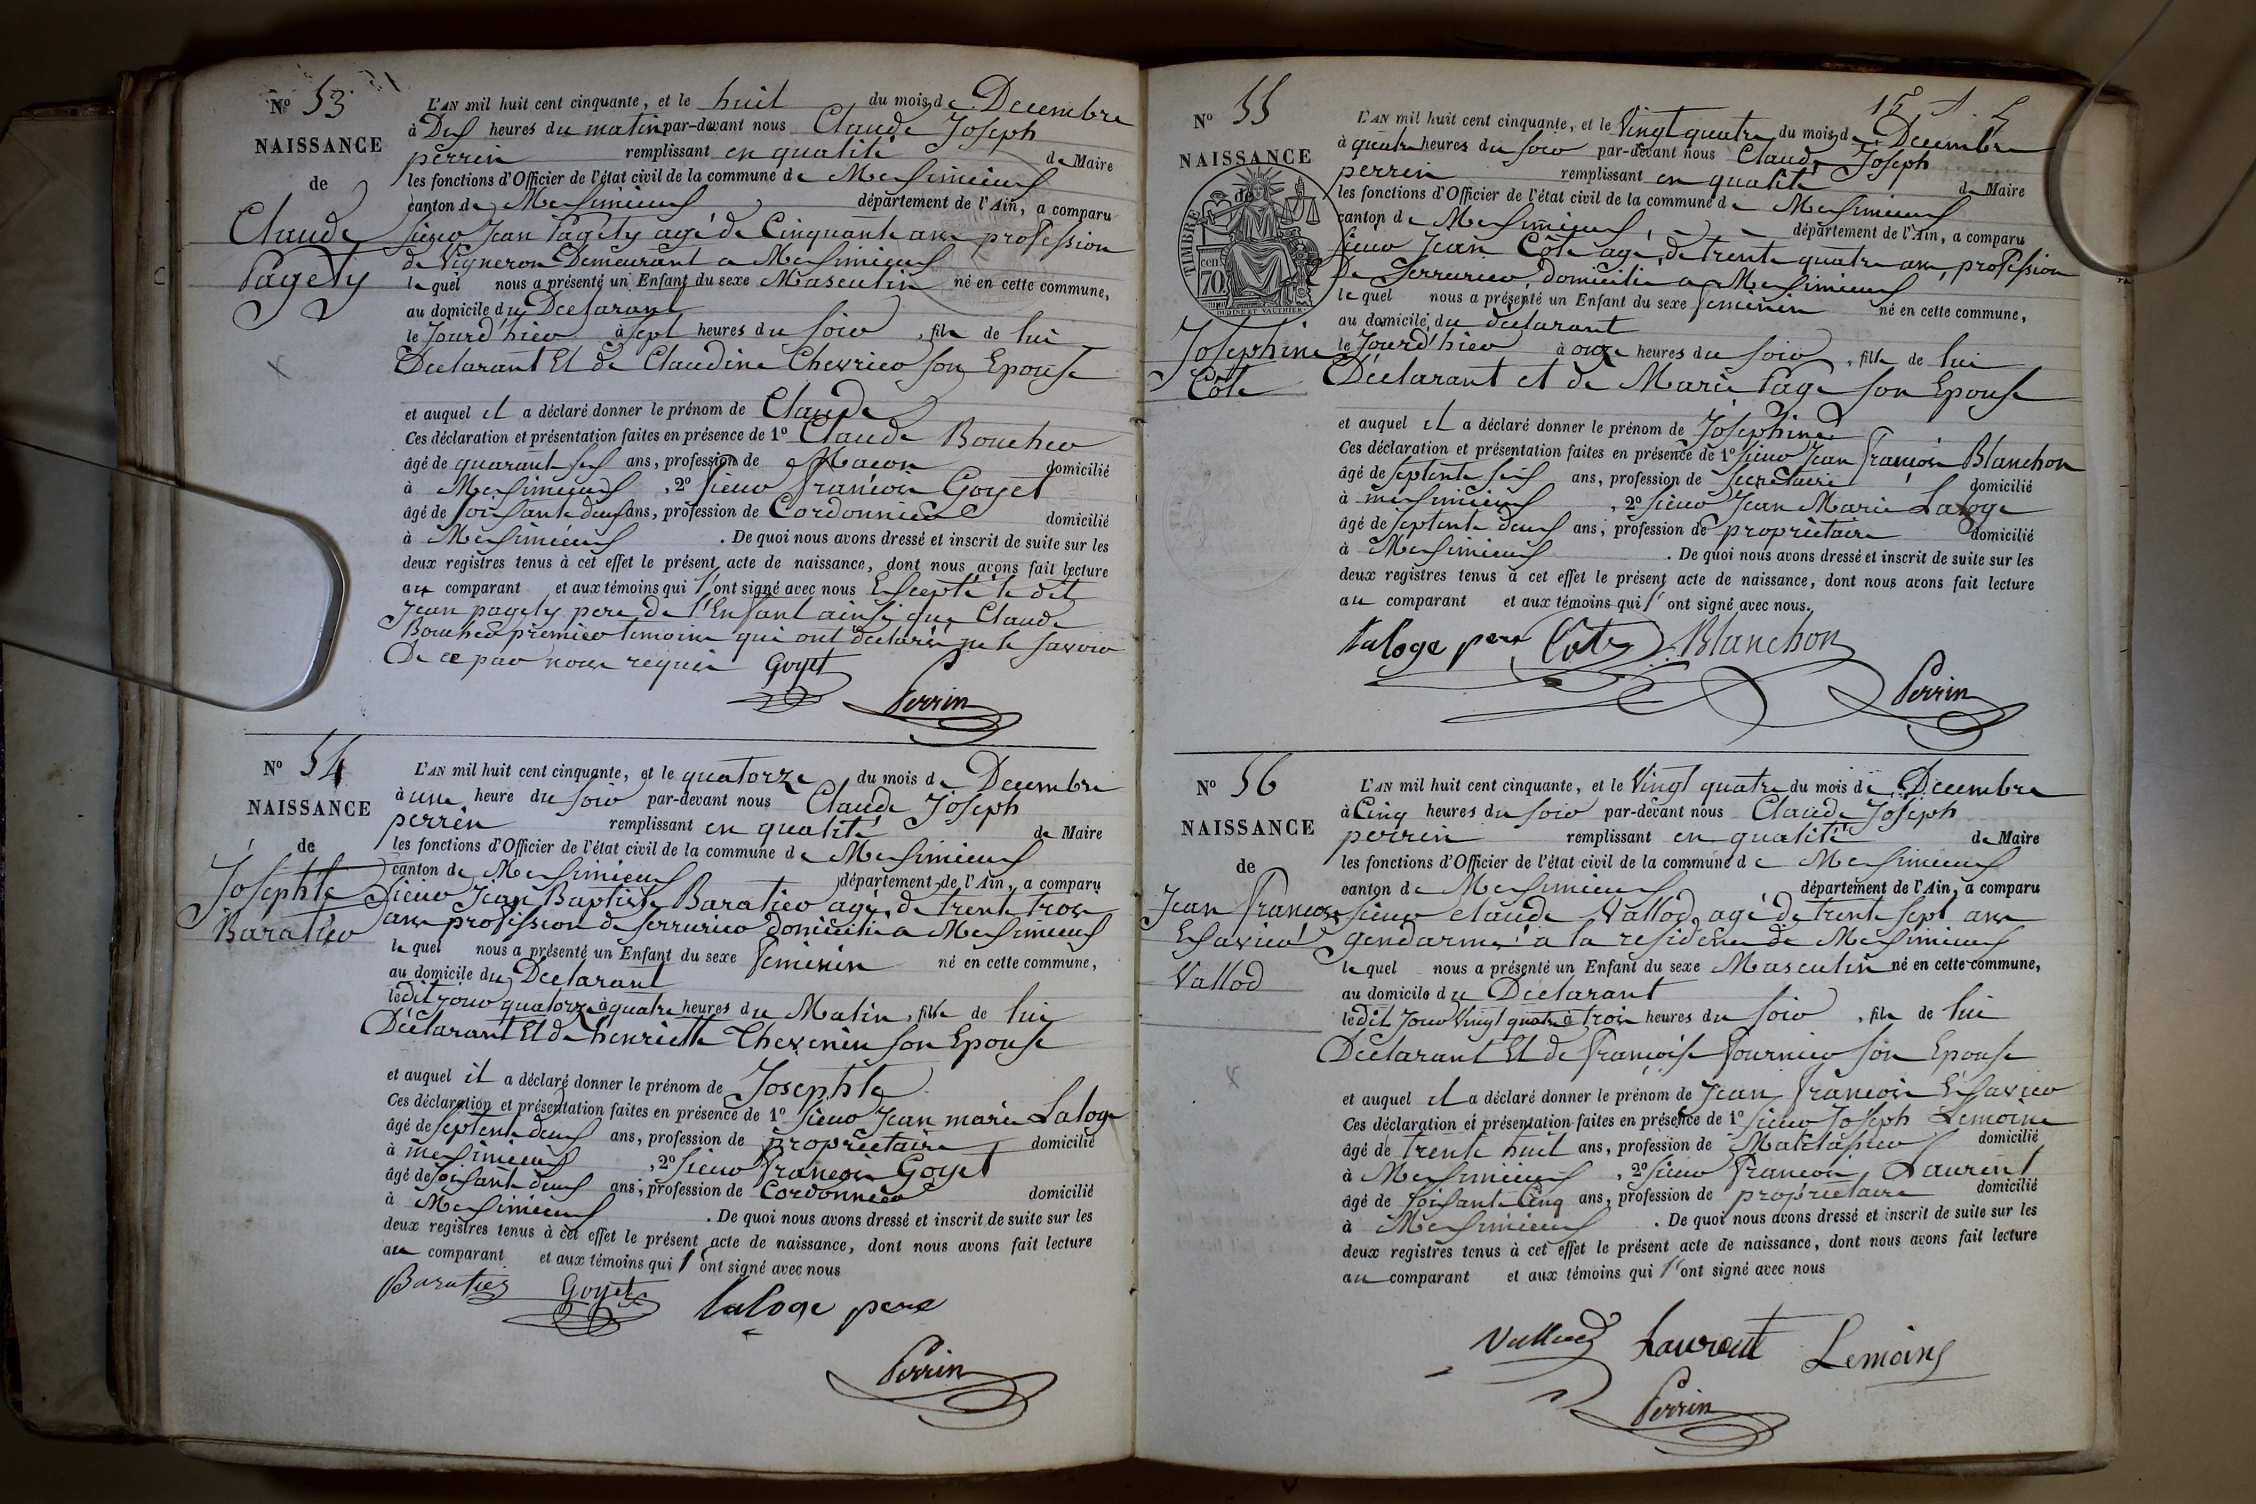 N° 53
NAISSANCE
de
Claude
Pagety
L'AN mil huit cent cinquante, et le huit du mois de Decembre
à Dix heures du matin par-devant nous Claude Joseph
perrin remplissant en qualité de Maire
les fonctions d'Officier de l'état civil de la commune de Meximieux
canton de Meximieux département de l'Ain, a comparu
sieur Jean Pagety agé de Cinquante ans profession
de Vigneron Demeurant a Meximieux
lequel nous a présenté un Enfant du sexe Masculin né en cette commune,
au domicile du Declarant
le Jourd'hier à sept heures du soir, fils de lui
Declarant Et de Claudine Chevrier son Epouse
et auquel il a déclaré donner le prénom de Claude
Ces déclaration et présentation faites en présence de 1° Claude Boucher
âgé de quarante six ans, profession de Macon domicilié
à Meximieux, 2° sieur francois Goyet
âgé de soixante deux ans, profession de Cordonnier domicilié
à Meximieux. De quoi nous avons dressé et inscrit de suite sur les
deux registres tenus à cet effet le présent acte de naissance, dont nous avons fait lecture
au comparant et aux témoins qui l'ont signé avec nous Excepté le dit
Jean pagety pere de l'Enfant ainsi que Claude
Boucher premier temoin qui ont declaré ne le savoir
De ce par nous requis Goyet
Perrin
N° 54
NAISSANCE
de
Josephte
Baratier
L'AN mil huit cent cinquante, et le quatorze du mois de Decembre
à une heure du soir par-devant nous Claude Joseph
perrin remplissant en qualité de Maire
les fonctions d'Officier de l'état civil de la commune de Meximieux
canton de Meximieux département de l'Ain, a comparu
sieur Jean Baptiste Baratier agé de trente trois
ans profession de serrurier domicilié a Meximieux
lequel nous a présenté un Enfant du sexe feminin né en cette commune,
au domicile du Declarant
ledit jour quatorze à quatre heures du Matin, fille de lui
Déclarant Et de henriette Thevenin son Epouse
et auquel il a déclaré donner le prénom de Josephte
Ces déclaration et présentation faites en présence de 1° sieur Jean marie Laloge
âgé de septente deux ans, profession de propriétaire domicilié
à meximieux, 2° sieur francois Goyet
âgé de soixante deux ans, profession de Cordonnier domicilié
à Meximieux. De quoi nous avons dressé et inscrit de suite sur les
deux registres tenus à cet effet le présent acte de naissance, dont nous avons fait lecture
au comparant et aux témoins qui l'ont signé avec nous
Baratier Goyet laloge pere
Perrin
15
N° 55
NAISSANCE
de
TIMBRE
cen
70
OUDINÉ ET VAUTHIER
Josephine
Côte
L'AN mil huit cent cinquante, et le Vingt quatre du mois de Decembre
à quatre heures du soir par-devant nous Claude Joseph
perrin remplissant en qualité de Maire
les fonctions d'Officier de l'état civil de la commune de Meximieux
canton de Meximieux, département de l'Ain, a comparu
sieur Jean Côte agé de trente quatre ans, profession
De Serrurier, domicilié a Meximieux
lequel nous a présenté un Enfant du sexe feminin né en cette commune,
au domicile du déclarant
le Jourd'hier à onze heures du soir, fille de lui
Déclarant et de Marie Page son Epouse
et auquel il a déclaré donner le prénom de Josephine
Ces déclaration et présentation faites en présence de 1° sieur Jean François Blanchon
âgé de septente six ans, profession de secrétaire domicilié
à meximieux, 2° sieur Jean Marie Laloge
âgé de septente deux ans, profession de propriétaire domicilié
à Meximieux. De quoi nous avons dressé et inscrit de suite sur les
deux registres tenus à cet effet le présent acte de naissance, dont nous avons fait lecture
au comparant et aux témoins qui l'ont signé avec nous.
laloge pere Cote Blanchon
Perrin
N° 56
NAISSANCE
de
Jean francois
Exavier
Vallod
L'AN mil huit cent cinquante, et le Vingt quatre du mois de Decembre
à Cinq heures du soir par-devant nous Claude Joseph
perrin remplissant en qualité de Maire
les fonctions d'Officier de l'état civil de la commune de Meximieux
canton de Meximieux département de l'Ain, a comparu
sieur claude Vallod, agé de trente sept ans
gendarme a la residence de Meximieux
lequel nous a présenté un Enfant du sexe Masculin né en cette commune,
au domicile du Déclarant
ledit Jour Vingt quatre à trois heures du soir, fils de lui
Déclarant Et de françoise fournier son Epouse
et auquel il a déclaré donner le prénom de Jean francois Exavier
Ces déclaration et présentation faites en présence de 1° sieur Joseph Lemoine
âgé de trente huit ans, profession de Matelassier domicilié
à Meximieux, 2° sieur francois Laurent
âgé de soixante Cinq ans, profession de propriétaire domicilié
à Meximieux. De quoi nous avons dressé et inscrit de suite sur les
deux registres tenus à cet effet le présent acte de naissance, dont nous avons fait lecture
au comparant et aux témoins qui l'ont signé avec nous
Vallod Laurent Lemoine
Perrin